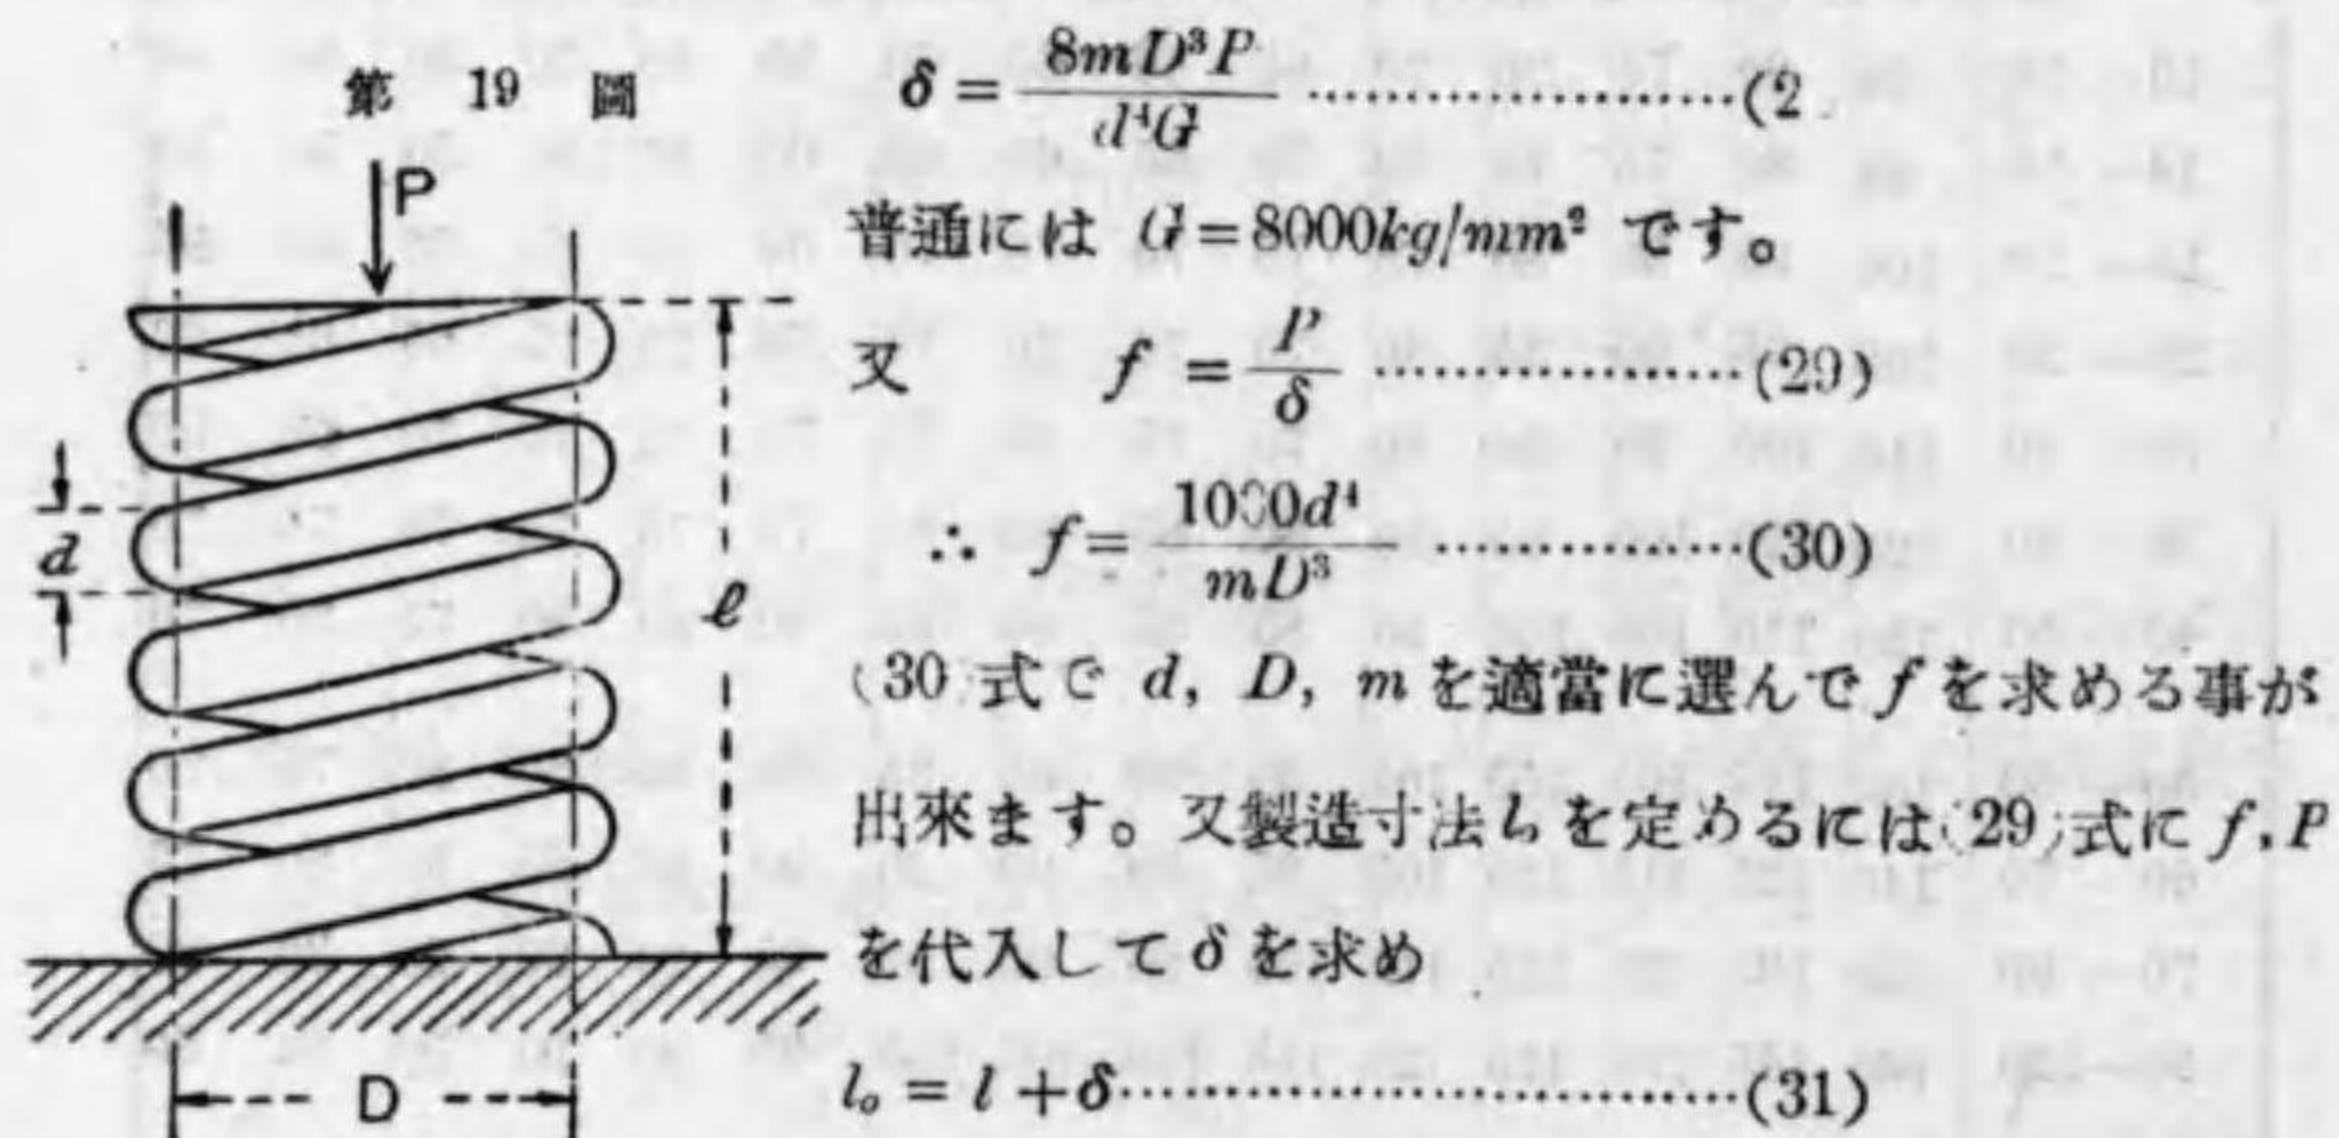 第 19 圖
P
d
ℓ
D
δ = 8mD³P / d⁴G ……………………(2
普通には G=8000kg/mm² です。
又 f = P / δ …………………(29)
∴ f = 1000d⁴ / mD³ ………………(30)
(30 式で d, D, m を適當に選んで f を求める事が
出來ます。又製造寸法 l₀ を定めるには(29)式に f, P
を代入して δ を求め
l₀ = l + δ………………………………(31)